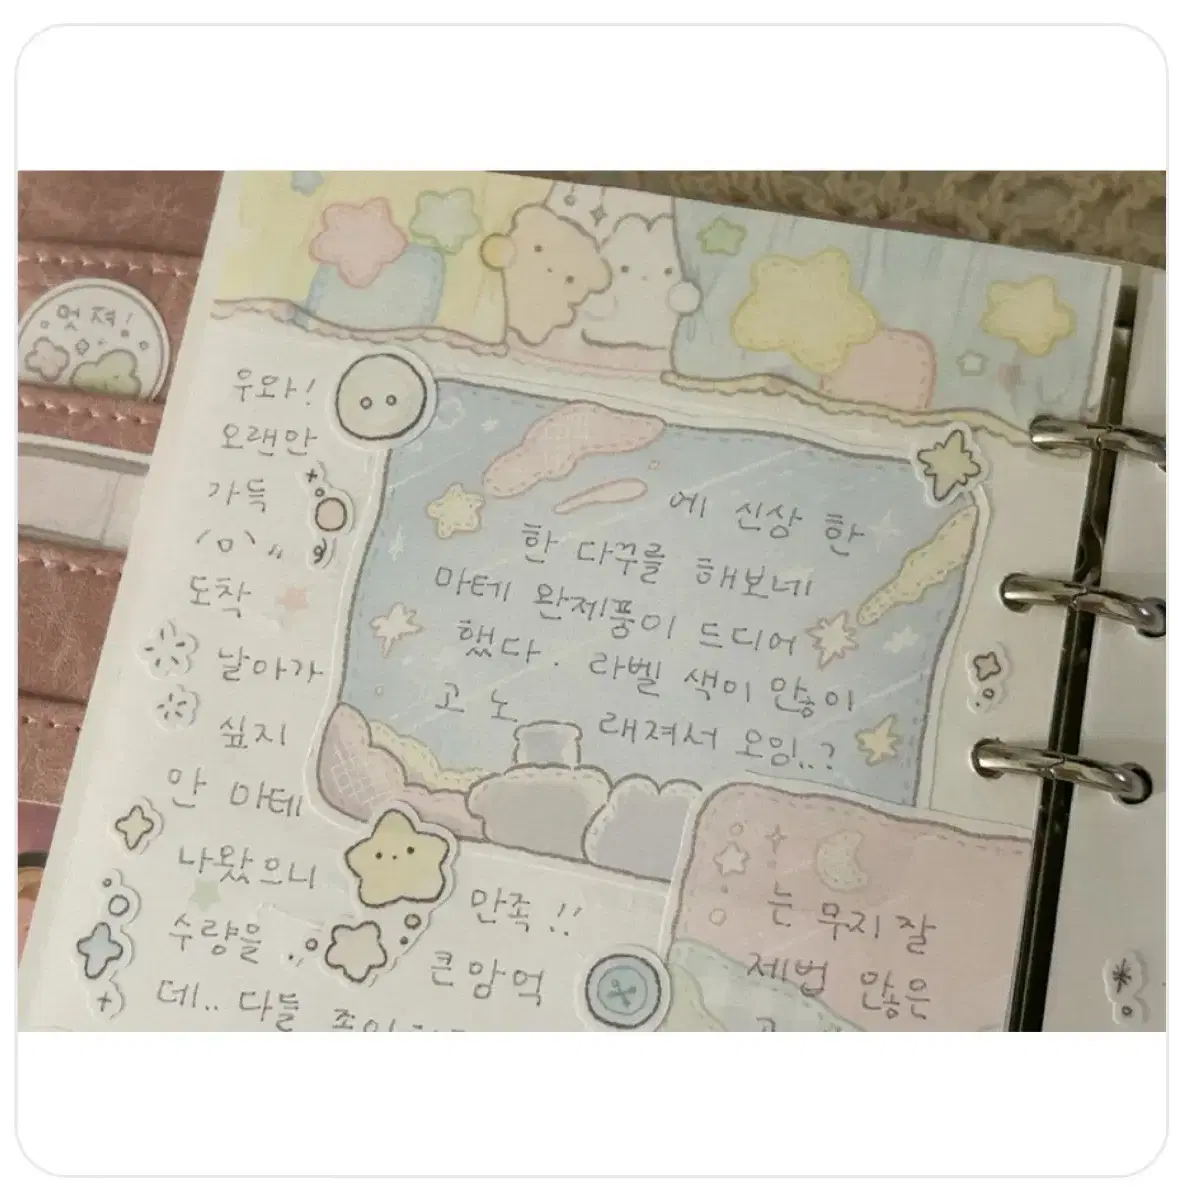 멋져!
우와!
오랜만
에 신상 한
가득
한 다꾸를 해보네
도착
마테 완제품이 드디어
날아가
했다. 라벨 색이 않이
싶지
고 노
래져서 오잉..?
만 마테
나왔으니
만족!!
는 무지 잘
수량을
큰맘먹
제법 않은
데.. 다들
고